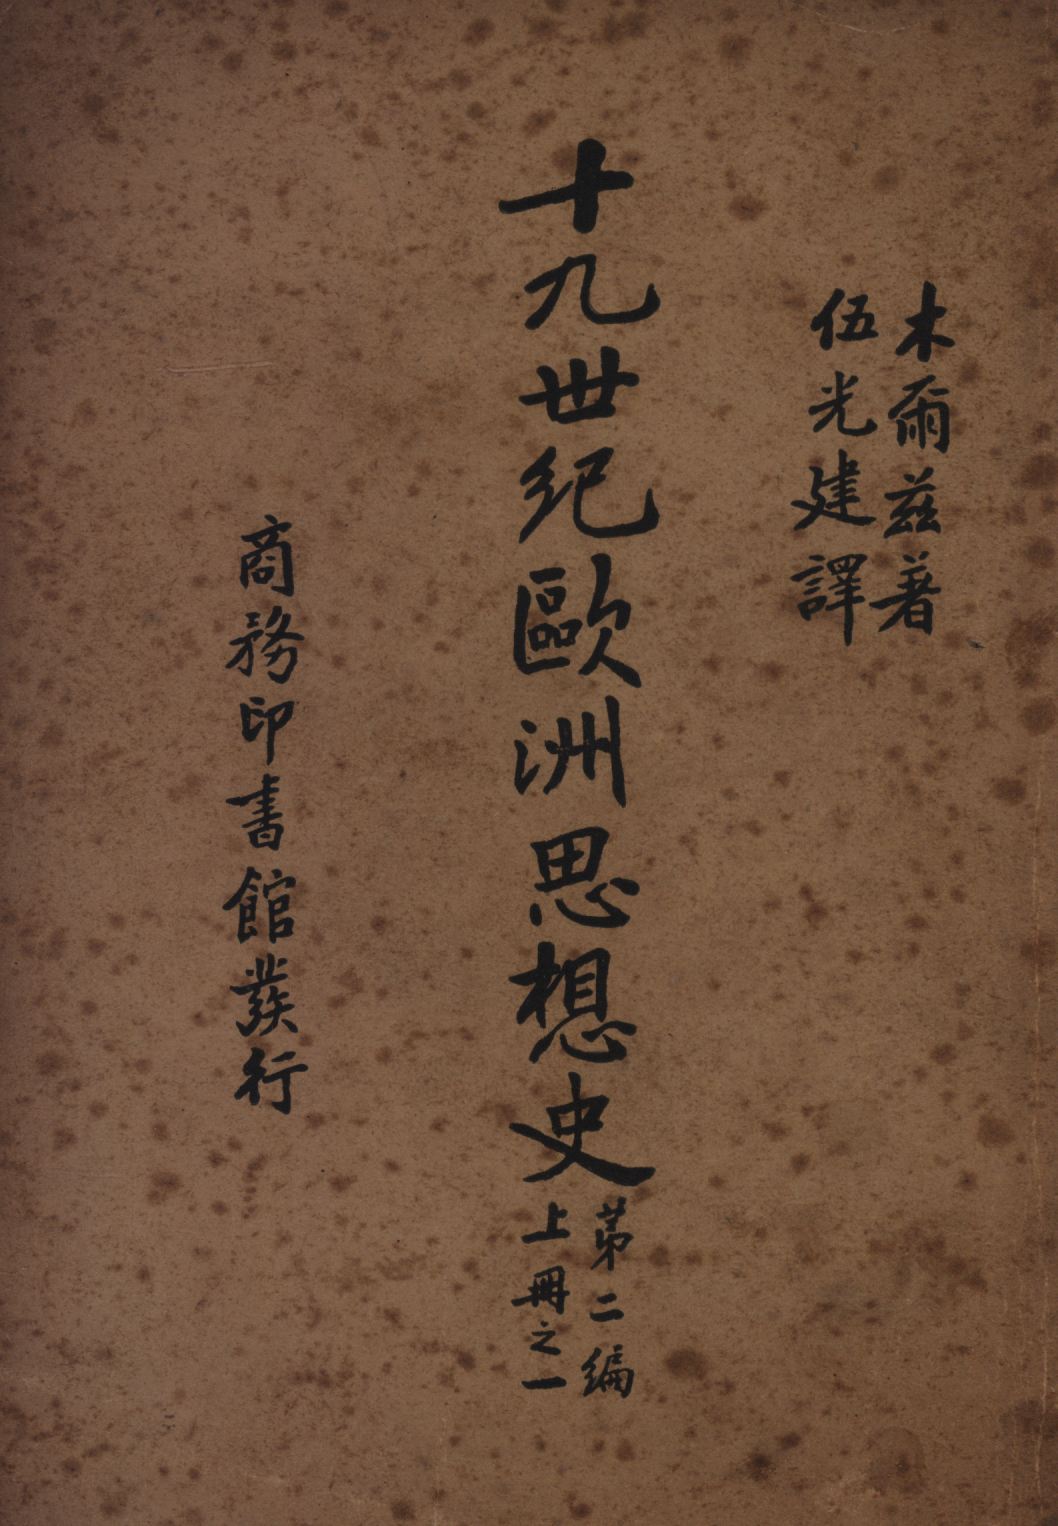 木爾茲著
伍光建譯
十九世紀歐洲思想史
第二編
上冊之一
商務印書館發行